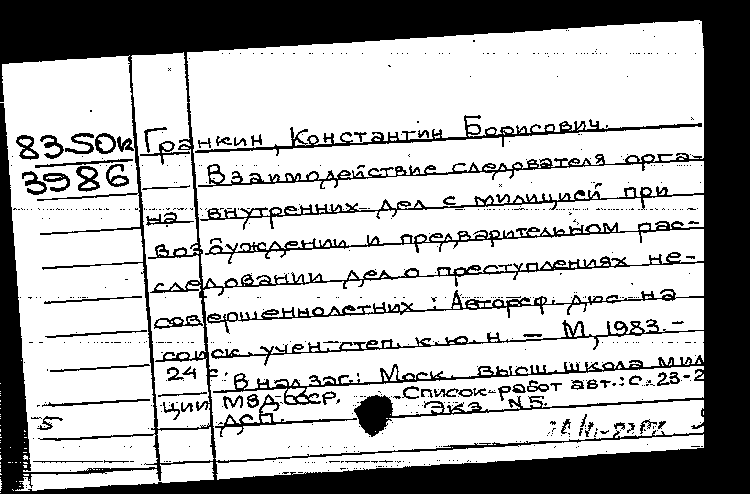 83-50к Гранкин, Константин Борисович.
3986
Взаимодействие следователя орга-
на внутренних дел с милицией при
возбуждении и предварительном рас-
следовании дел о преступлениях не-
совершеннолетних : Автореф. дис на
соиск. учен. степ. к. ю. н. – М., 1983. –
24 с.
В надзаг.: Моск. высш. школа мили
ции МВД СССР. Список работ авт.: с. 23-2
ДСП. Экз. N5.
5